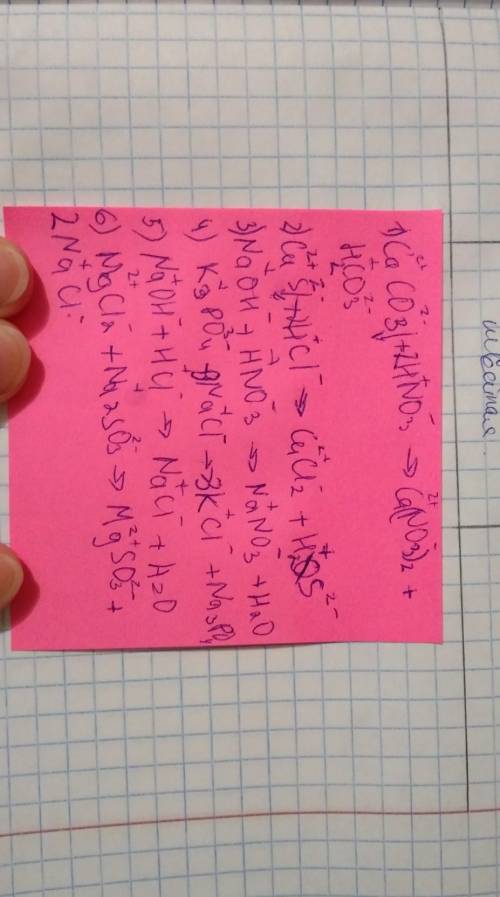 1) Ca²⁺CO₃²⁻↓ + 2H⁺NO₃⁻ → Ca²⁺(NO₃⁻)₂ +
H₂⁺CO₃²⁻
2) Ca²⁺S²⁻↓ + H⁺Cl⁻ → Ca²⁺Cl₂⁻ + H₂⁺S²⁻
3) Na⁺OH⁻ + H⁺NO₃⁻ → Na⁺NO₃⁻ + H₂O
4) K₃⁺PO₄³⁻ + 3Na⁺Cl⁻ → 3K⁺Cl⁻ + Na₃PO₄
5) Na⁺OH⁻ + H⁺Cl⁻ → Na⁺Cl⁻ + H₂O
6) Mg²⁺Cl₂⁻ + Na₂⁺SO₃²⁻ → Mg²⁺SO₃²⁻ +
2Na⁺Cl⁻